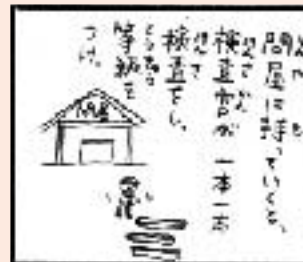 問屋に持っていくと、
検査官が一本一本
検査をし、
等級を
つけ、